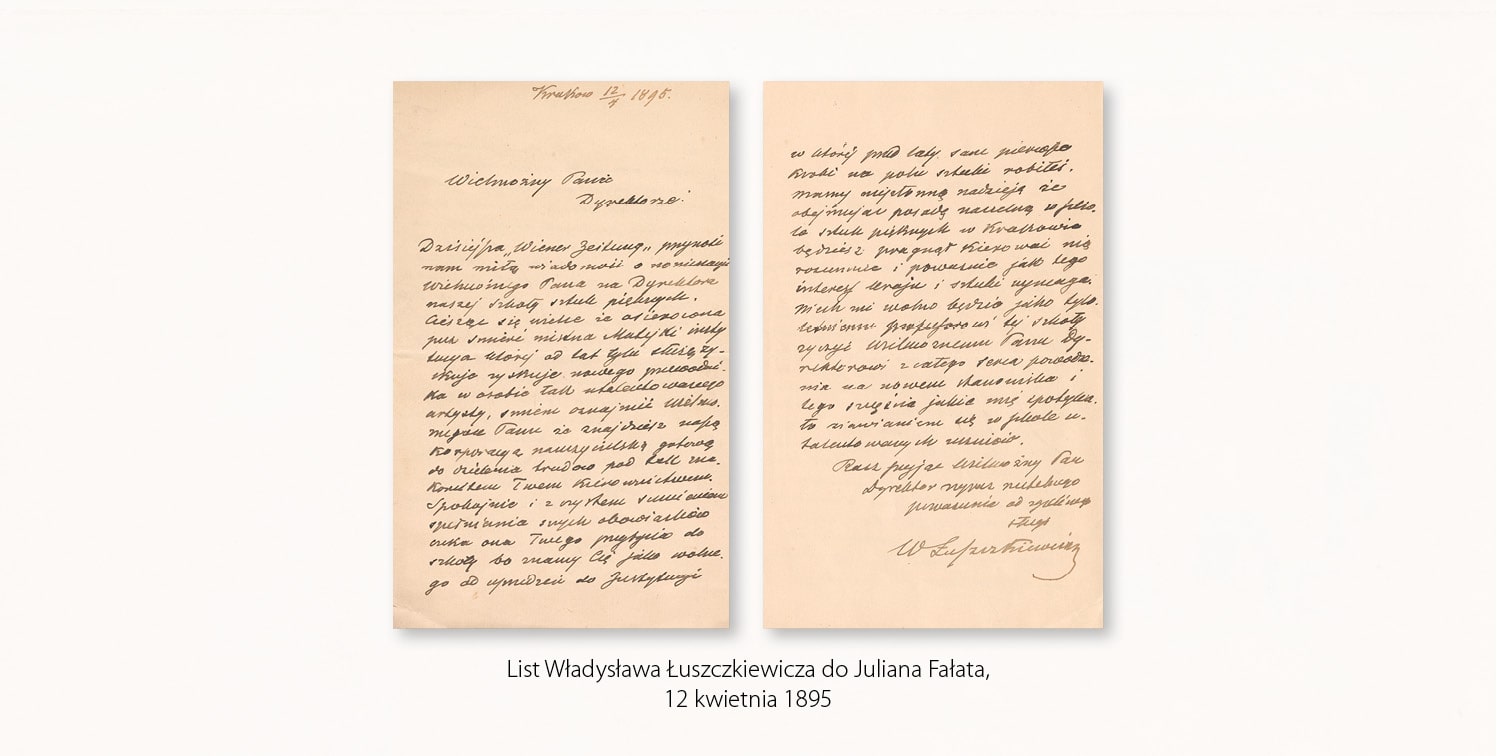 Kraków 12/4 1895.
Wielmożny Panie
Dyrektorze!
Dzisiejsza „Wiener Zeitung„ przynosi
nam miłą wiadomość o nominacyi
Wielmożnego Pana na Dyrektora
naszej szkoły sztuk pięknych.
Ciesząc się wielce że osierocona
przez śmierć mistrza Matejki insty
tucya której od lat tylu służę zy-
skuje zyskuje nowego przewodni-
ka w osobie tak utalentowanego
artysty, śmiem oznajmić Wielmo.
żnemu Panu że znajdziesz naszą
korporacyą nauczycielską gotową
do dzielenia trudów pod tak zna.
komitem Twem kierownictwem.
Spokojnie i z czystem sumieniem
spełniania swych obowiązków
czeka ona Twego przybycia do
szkoły bo znamy Cię jako wolne.
go od uprzedzeń do Instytucyi
w której przed laty sam pierwsze
kroki na polu sztuki robiłeś.
mamy niepłonną nadzieję że
obejmując posadę naczelną w szko.
le sztuk pięknych w Krakowie
będziesz pragnął kierować nią
rozumnie i poważnie jak tego
interes kraju i sztuki wymaga.
Niech mi wolno będzie jako tylo.
letniemu profesorowi tej szkoły
życzyć Wielmożnemu Panu Dy-
rektorowi z całego serca powodze.
nia na nowem stanowisku i
tego szczęścia jakie mię spotyka.
ło zjawianiem się w szkole u-
talentowanych uczniów.
Racz przyjąć Wielmożny Pan
Dyrektor wyraz rzetelnego
poważania od życzliwego
sługi
W Łuszczkiewicz
List Władysława Łuszczkiewicza do Juliana Fałata,
12 kwietnia 1895